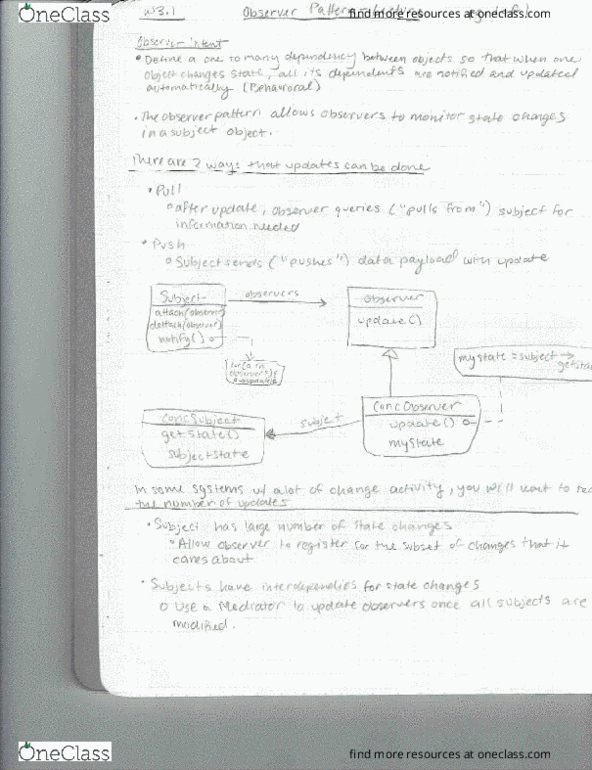 OneClass
find more resources at oneclass.com
W3.1 Observer Pattern
Observer - intent
• Define a one to many dependency between objects so that when one
object changes state, all its dependents are notified and updated
automatically (Behavioral)
• The observer pattern allows observers to monitor state changes
in a subject object.
There are 2 ways that updates can be done
• Pull
o after update, observer queries ("pulls from") subject for
information needed
• Push
o Subject sends ("pushes") data payload with update
Subject
attach(observer)
dettach(observer)
notify()
observers
Observer
update()
for(o in
observers){
mystate = subject →
getstat
ConcSubject
getState()
subjectState
subject
ConcObserver
update()
mystate
In some systems w/ a lot of change activity, you will want to re
the number of updates
• Subject has large number of state changes
• Allow observer to register for the subset of changes that it
cares about
• Subjects have interdependies for state changes
o Use a Mediator to update observers once all subjects are
modified.
OneClass
find more resources at oneclass.com